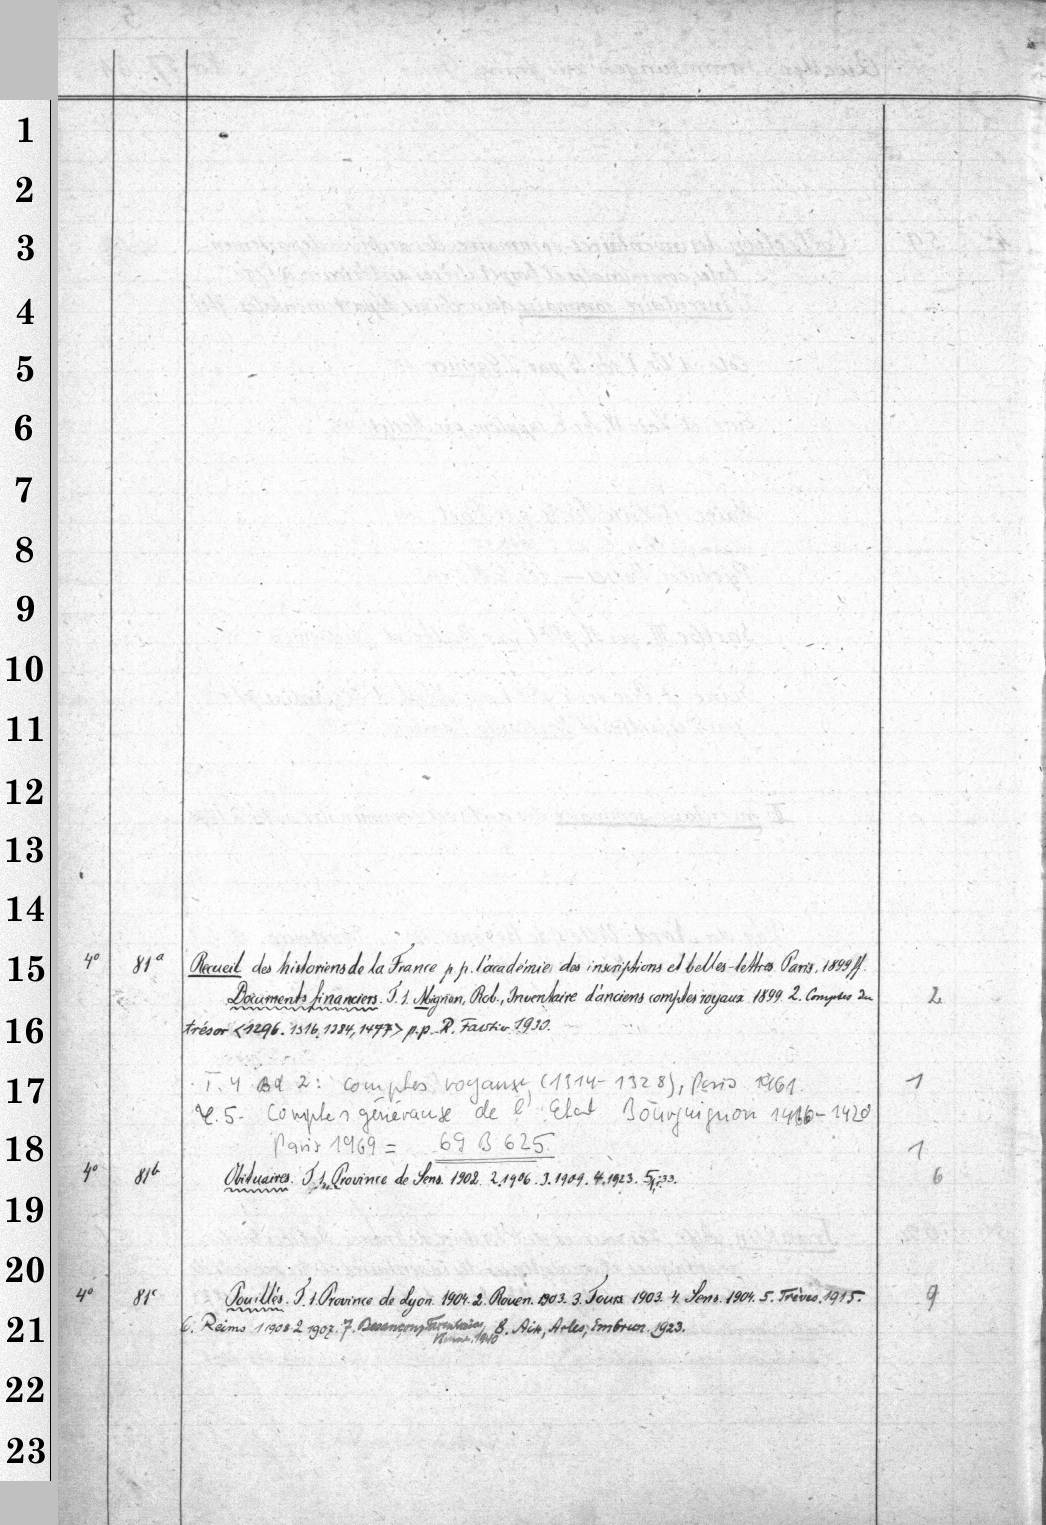 1
2
3
4
5
6
7
8
9
10
11
12
13
14
15
16
17
18
19
20
21
22
23
4° 81a Recueil des historiens de la France p. p. l'académie des inscriptions et belles-lettres Paris, 1899 ff.
Documents financiers. T. 1. Mignon, Rob., Inventaire d'anciens comptes royaux 1899. 2. Comptes du 2
trésor <1296. 1316. 1384, 1477> p.p. R. Fawtier 1930.
T. 4 Bd 2: comptes royaux (1314-1328), Paris 1961. 1
T. 5. Comptes généraux de l'Etat Bourguignon 1416-1420
Paris 1969 = 69 B 625. 1
4° 81b Obituaires. T. 1. Province de Sens. 1902. 2. 1906. 3. 1909. 4. 1923. 5. 33. 6
4° 81c Pouillés. T. 1. Province de Lyon. 1904. 2. Rouen. 1903. 3. Tours 1903. 4. Sens. 1904. 5. Trèves. 1915. 9
6. Reims 1 1908 2 1907. 7. Besançon, Tarentaise, 8. Aix, Arles, Embrun. 1923.
Vienne. 1940